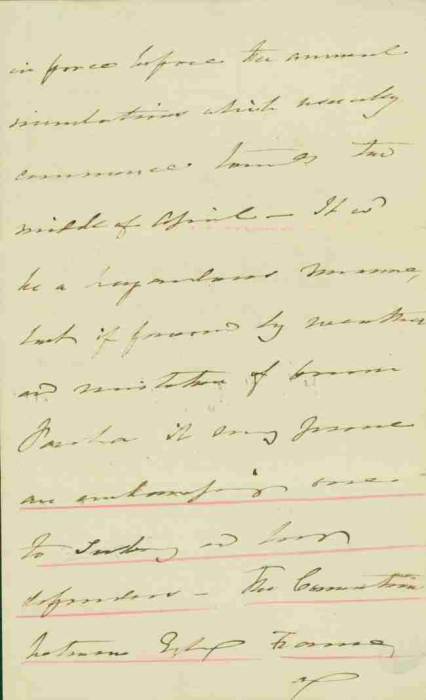 in force before the annual
inundations which usually
commence towards the
middle of April – It wd
be a hazardous manoeuvre,
but if favored by weather
and mistakes of Omer
Pacha it may prove
an embarrassing one –
to Turkey and her
defenders – The Convention
between Engld France,